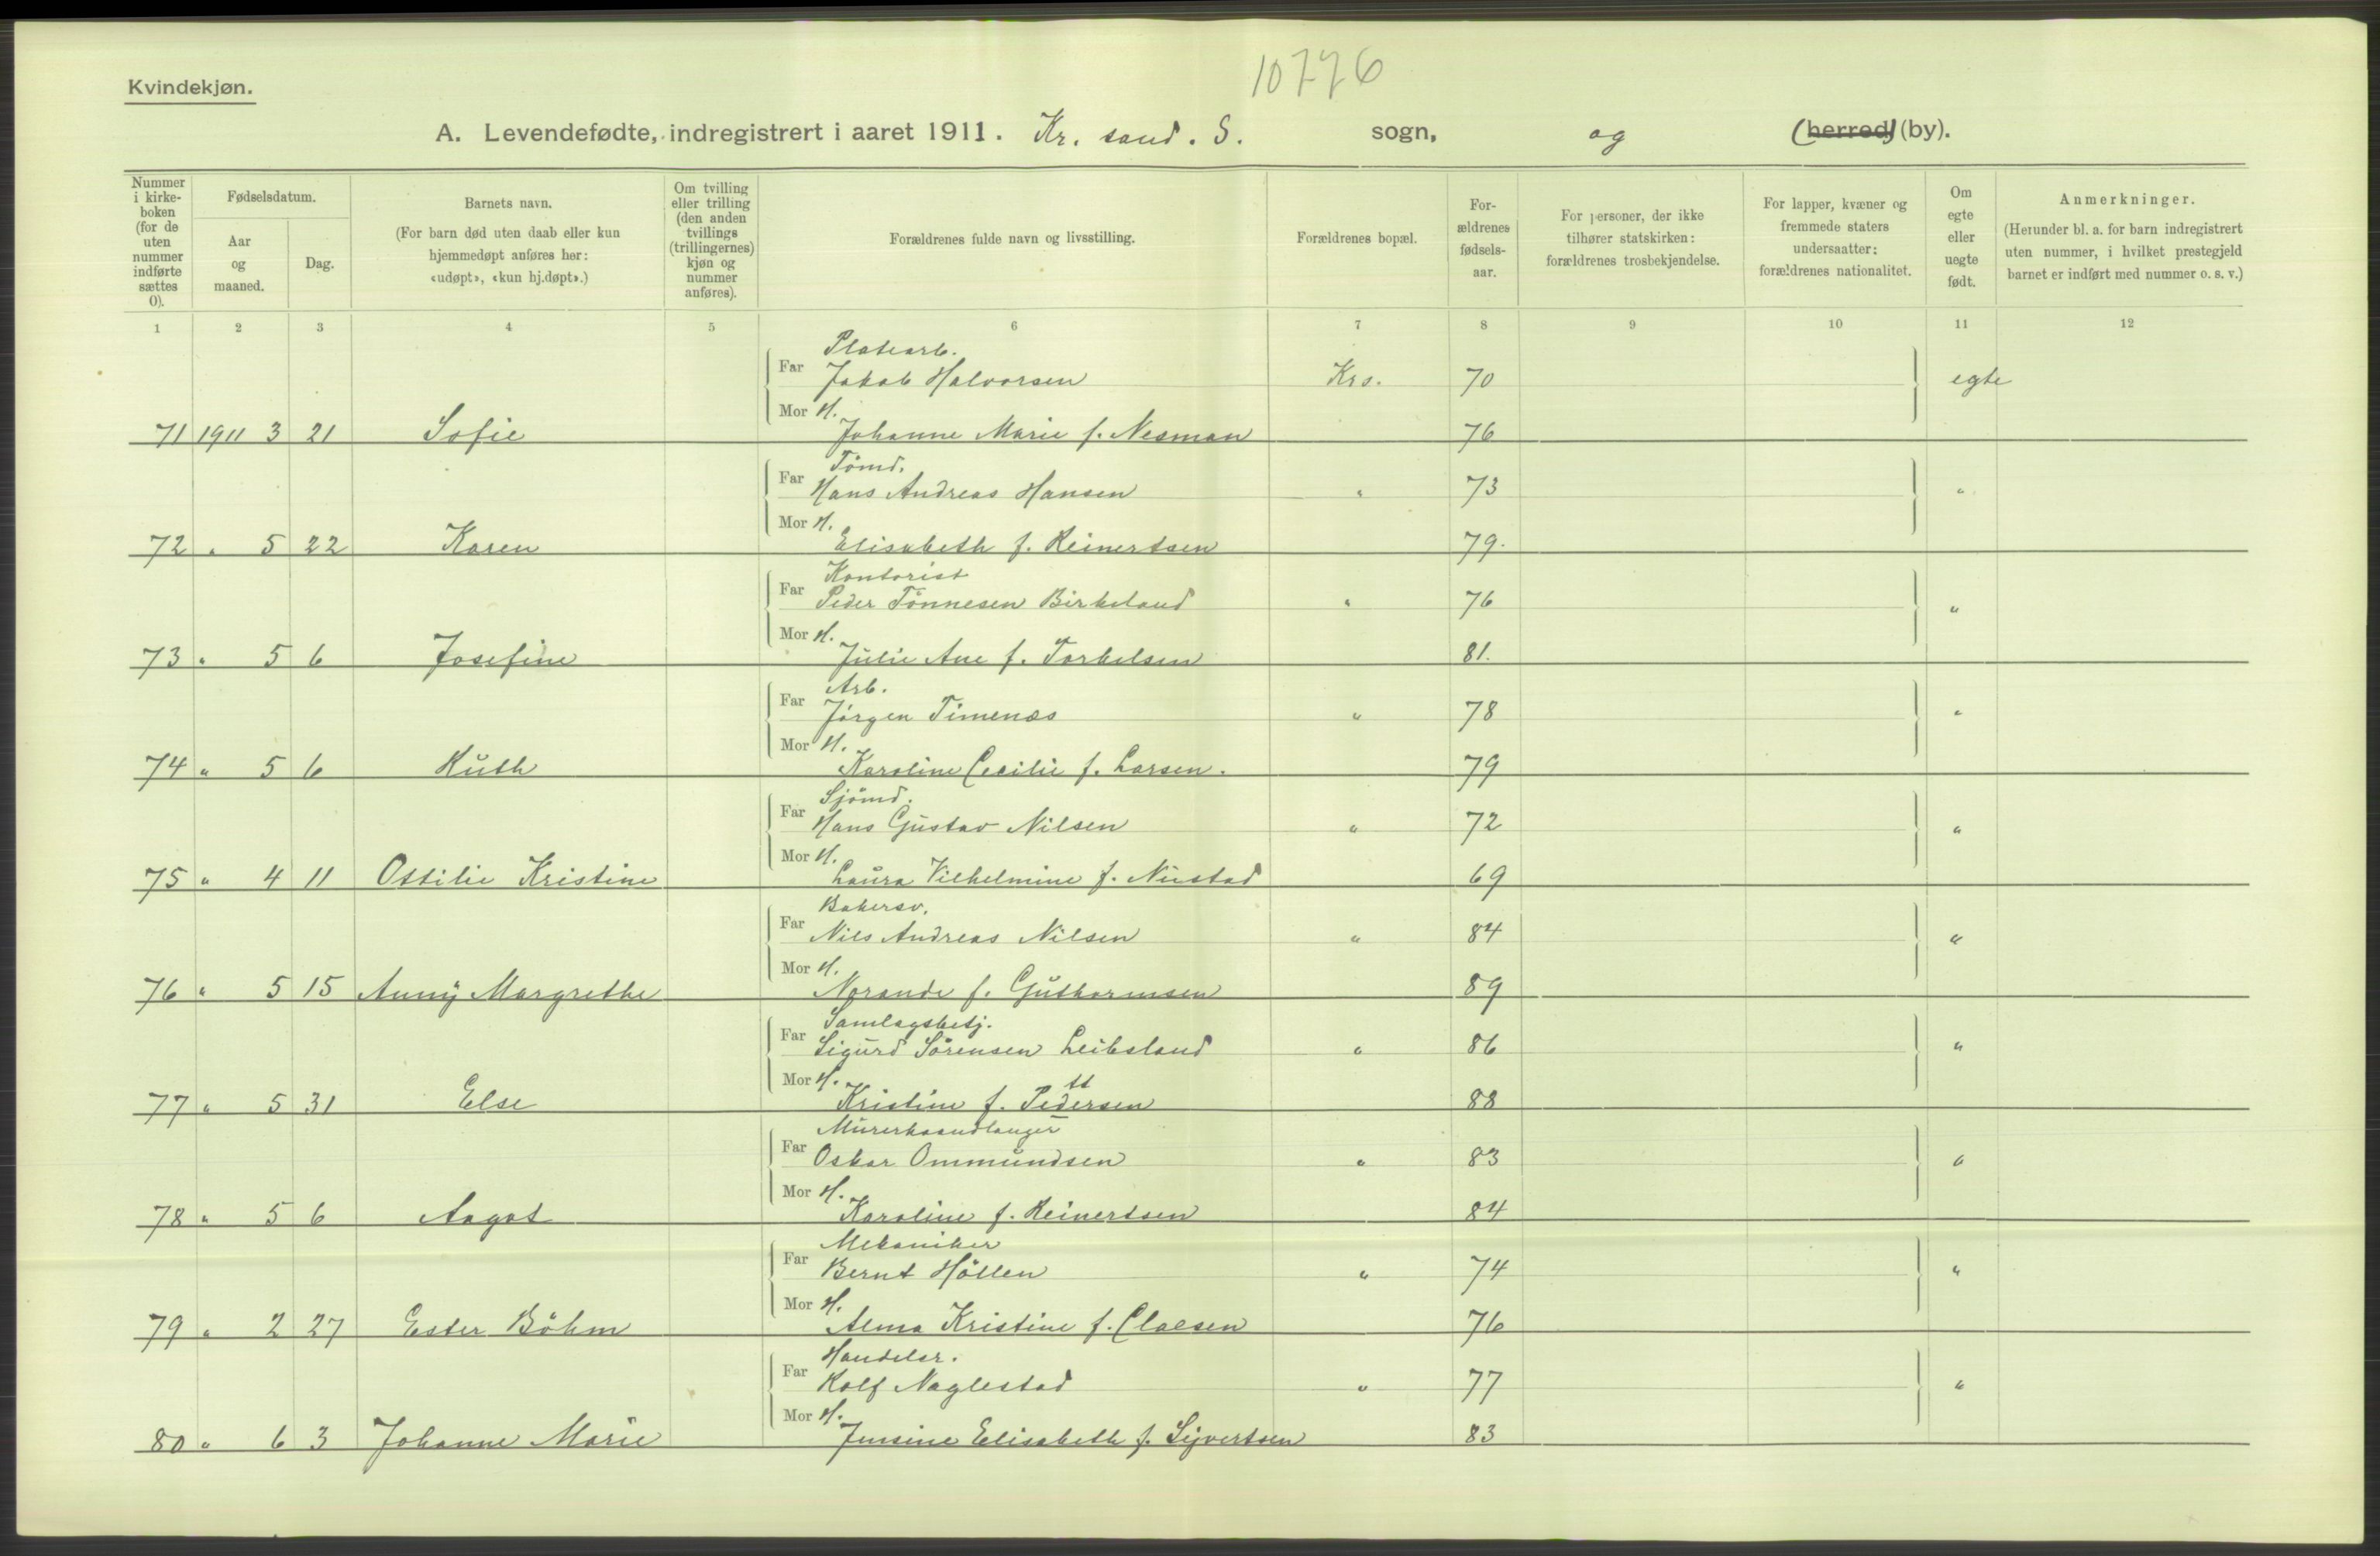 10776
Kvindekjøn.
A. Levendefødte, indregistrert i aaret 1911. Kr. sand. S. sogn, og (herred) (by).
Nummer i kirke-boken (for de uten nummer indførte sættes 0).
Fødselsdatum.
Aar og maaned.
Dag.
Barnets navn.
(For barn død uten daab eller kun hjemmedøpt anføres her: «udøpt», «kun hj.døpt».)
Om tvilling eller trilling (den anden tvillings (trillingernes) kjøn og nummer anføres).
Forældrenes fulde navn og livsstilling.
Forældrenes bopæl.
For-ældrenes fødsels-aar.
For personer, der ikke tilhører statskirken: forældrenes trosbekjendelse.
For lapper, kvæner og fremmede staters undersaatter: forældrenes nationalitet.
Om egte eller uegte født.
Anmerkninger.
(Herunder bl. a. for barn indregistrert uten nummer, i hvilket prestegjeld barnet er indført med nummer o. s. v.)
1 2 3 4 5 6 7 8 9 10 11 12
Platearb.
Far Jakob Halvorsen Krs. 70 egte
Mor H.
71 1911 3 21 Sofie Johanne Marie f. Nesman 76
Tömd.
Far Hans Andreas Hansen " 73 "
Mor H.
72 " 5 22 Karen Elisabeth f. Reinertsen 79.
Kontorist
Far Peder Tönnesen Birkeland " 76 "
Mor H.
73 " 5 6 Josefine Julie Ane f. Torkelsen 81.
Arb.
Far Jörgen Timenæs " 78 "
Mor H.
74 " 5 6 Ruth Karoline Cecilie f. Larsen. 79
Sjömd.
Far Hans Gustav Nilsen " 72 "
Mor H.
75 " 4 11 Ottilie Kristine Laura Vilhelmine f. Nustad 69
Bakersv.
Far Nils Andreas Nilsen " 84 "
Mor H.
76 " 5 15 Anny Margrethe Norande f. Guthormsen 89
Samlagsbetj.
Far Sigurd Sörensen Leibsland " 86 "
Mor H. tt
77 " 5 31 Else Kristine f. Pedersen 88
Murerhaandlanger
Far Oskar Ommundsen " 83 "
Mor H.
78 " 5 6 Aagot Karoline f. Reinertsen 84
Mekaniker
Far Bernt Höllen " 74 "
Mor H.
79 " 2 27 Ester Böhm Alma Kristine f. Claesen 76
Handelsr.
Far Rolf Naglestad " 77 "
Mor H.
80 " 6 3 Johanne Marie Jensine Elisabeth f. Sijvertsen 83